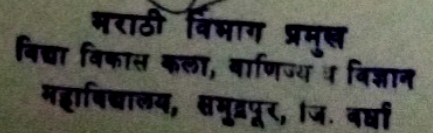 मराठी विभाग प्रमुख
विद्या विकास कला, वाणिज्य व विज्ञान
महाविद्यालय, समुद्रपूर, जि. वर्धा